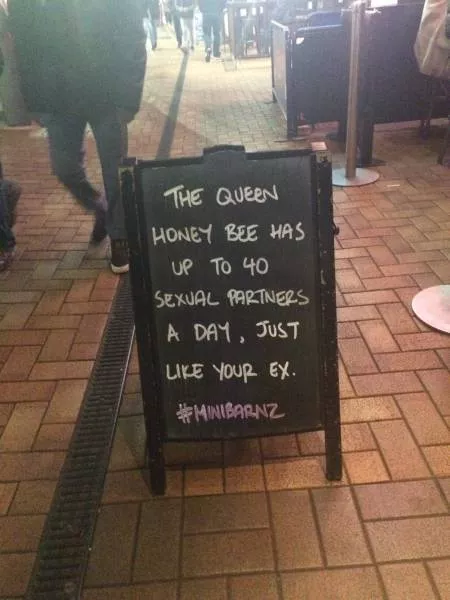 THE QUEEN
HONEY BEE HAS
UP TO 40
SEXUAL PARTNERS
A DAY, JUST
LIKE YOUR EX.
#MINIBARNZ